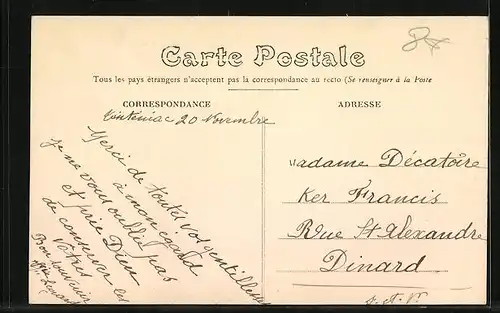 Carte Postale
Tous les pays étrangers n'acceptent pas la correspondance au recto (Se renseigner à la Poste
CORRESPONDANCE
ADRESSE
Tinténiac 20 Novembre
Merci de toutes vos gentillesses
à mon égard
je ne vous oublie pas
et prie Dieu
de conserver les
vôtres
Bon souvenir
Madame Décatoire
Ker Francis
Rue St Alexandre
Dinard